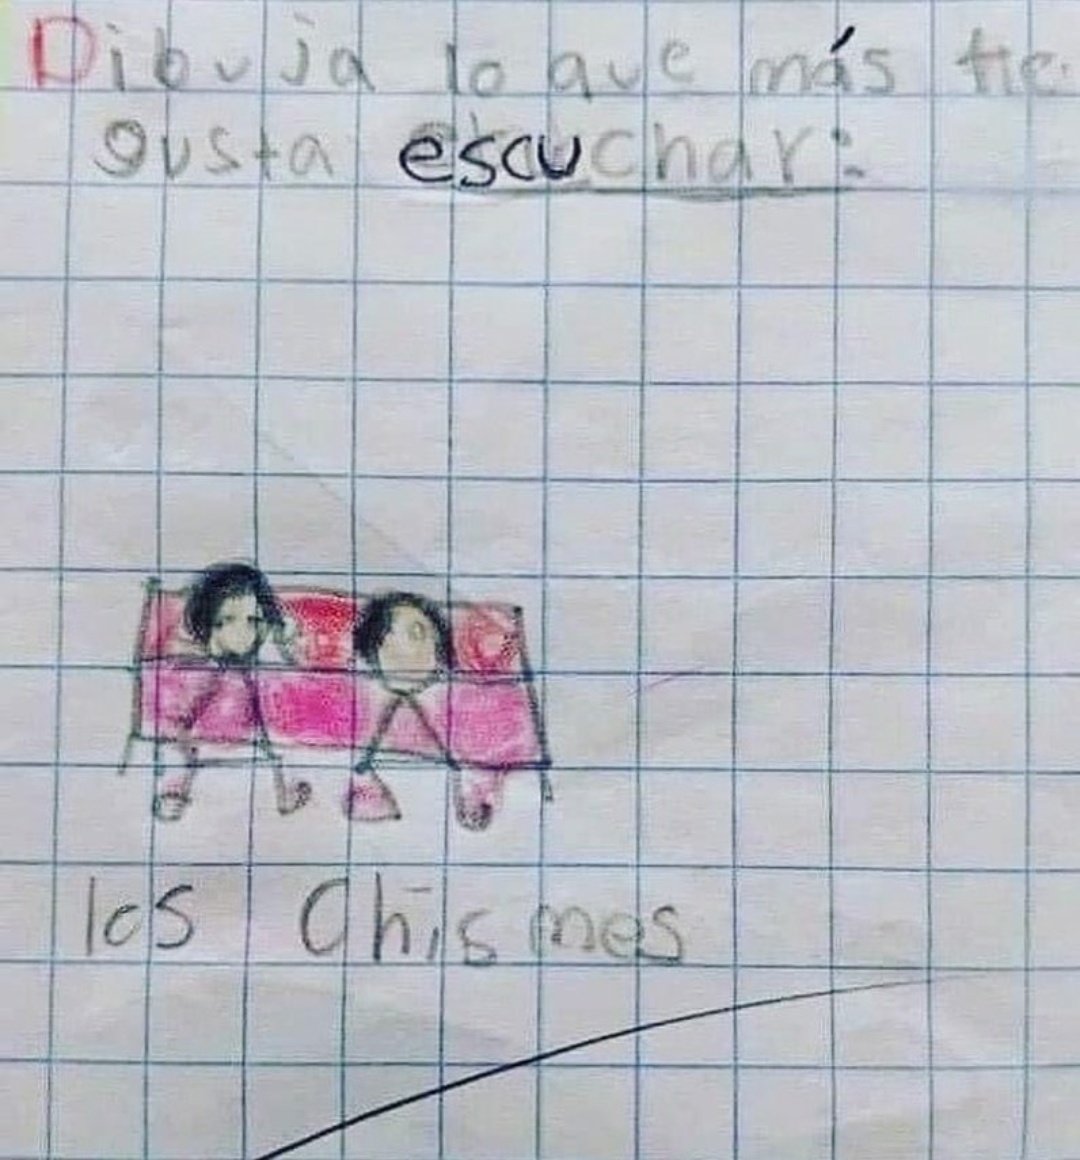 Dibuja lo que más te
gusta escuchar:
los Chismes